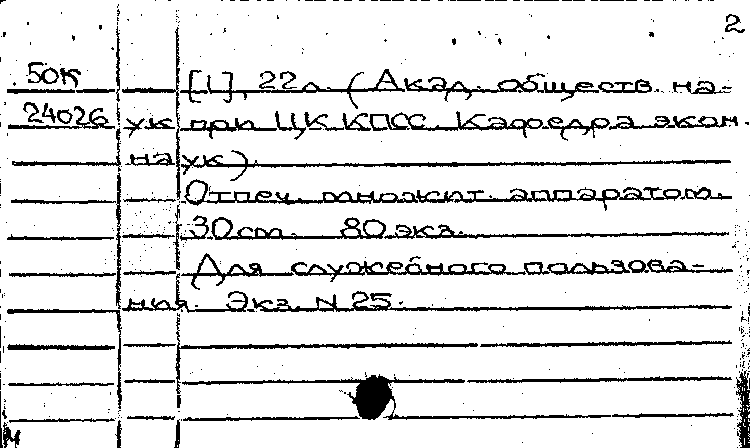 2
50К [1], 22л. (Акад. обществ. на-
24026 ук при ЦК КПСС. Кафедра экон.
наук).
Отпеч. множит. аппаратом.
30см. 80 экз.
Для служебного пользова-
ния. Экз. N 25.